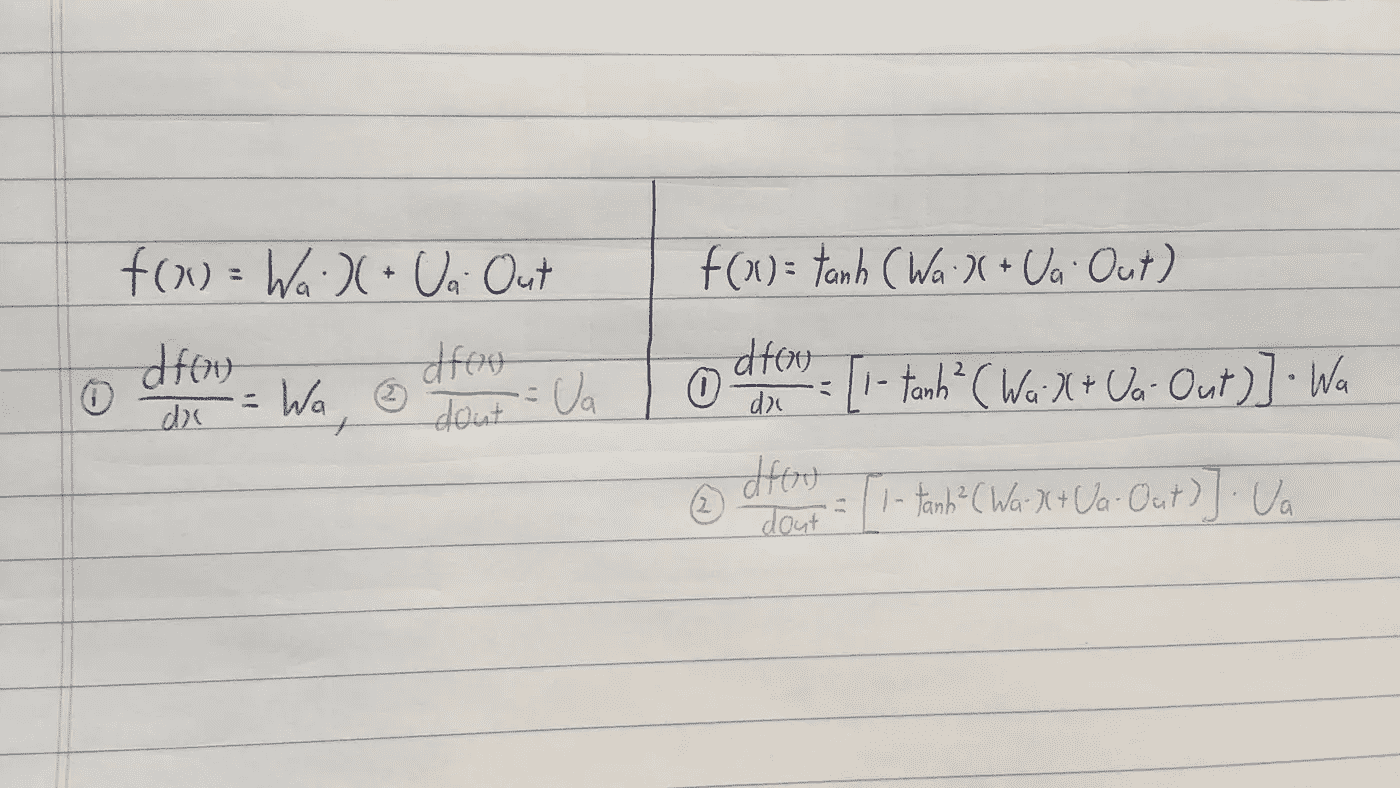 f(x) = Wa · x + Ua · Out
① df(x)/dx = Wa, ② df(x)/dOut = Ua
f(x) = tanh (Wa · x + Ua · Out)
① df(x)/dx = [1 - tanh² (Wa · x + Ua · Out)] · Wa
② df(x)/dOut = [1 - tanh² (Wa · x + Ua · Out)] · Ua